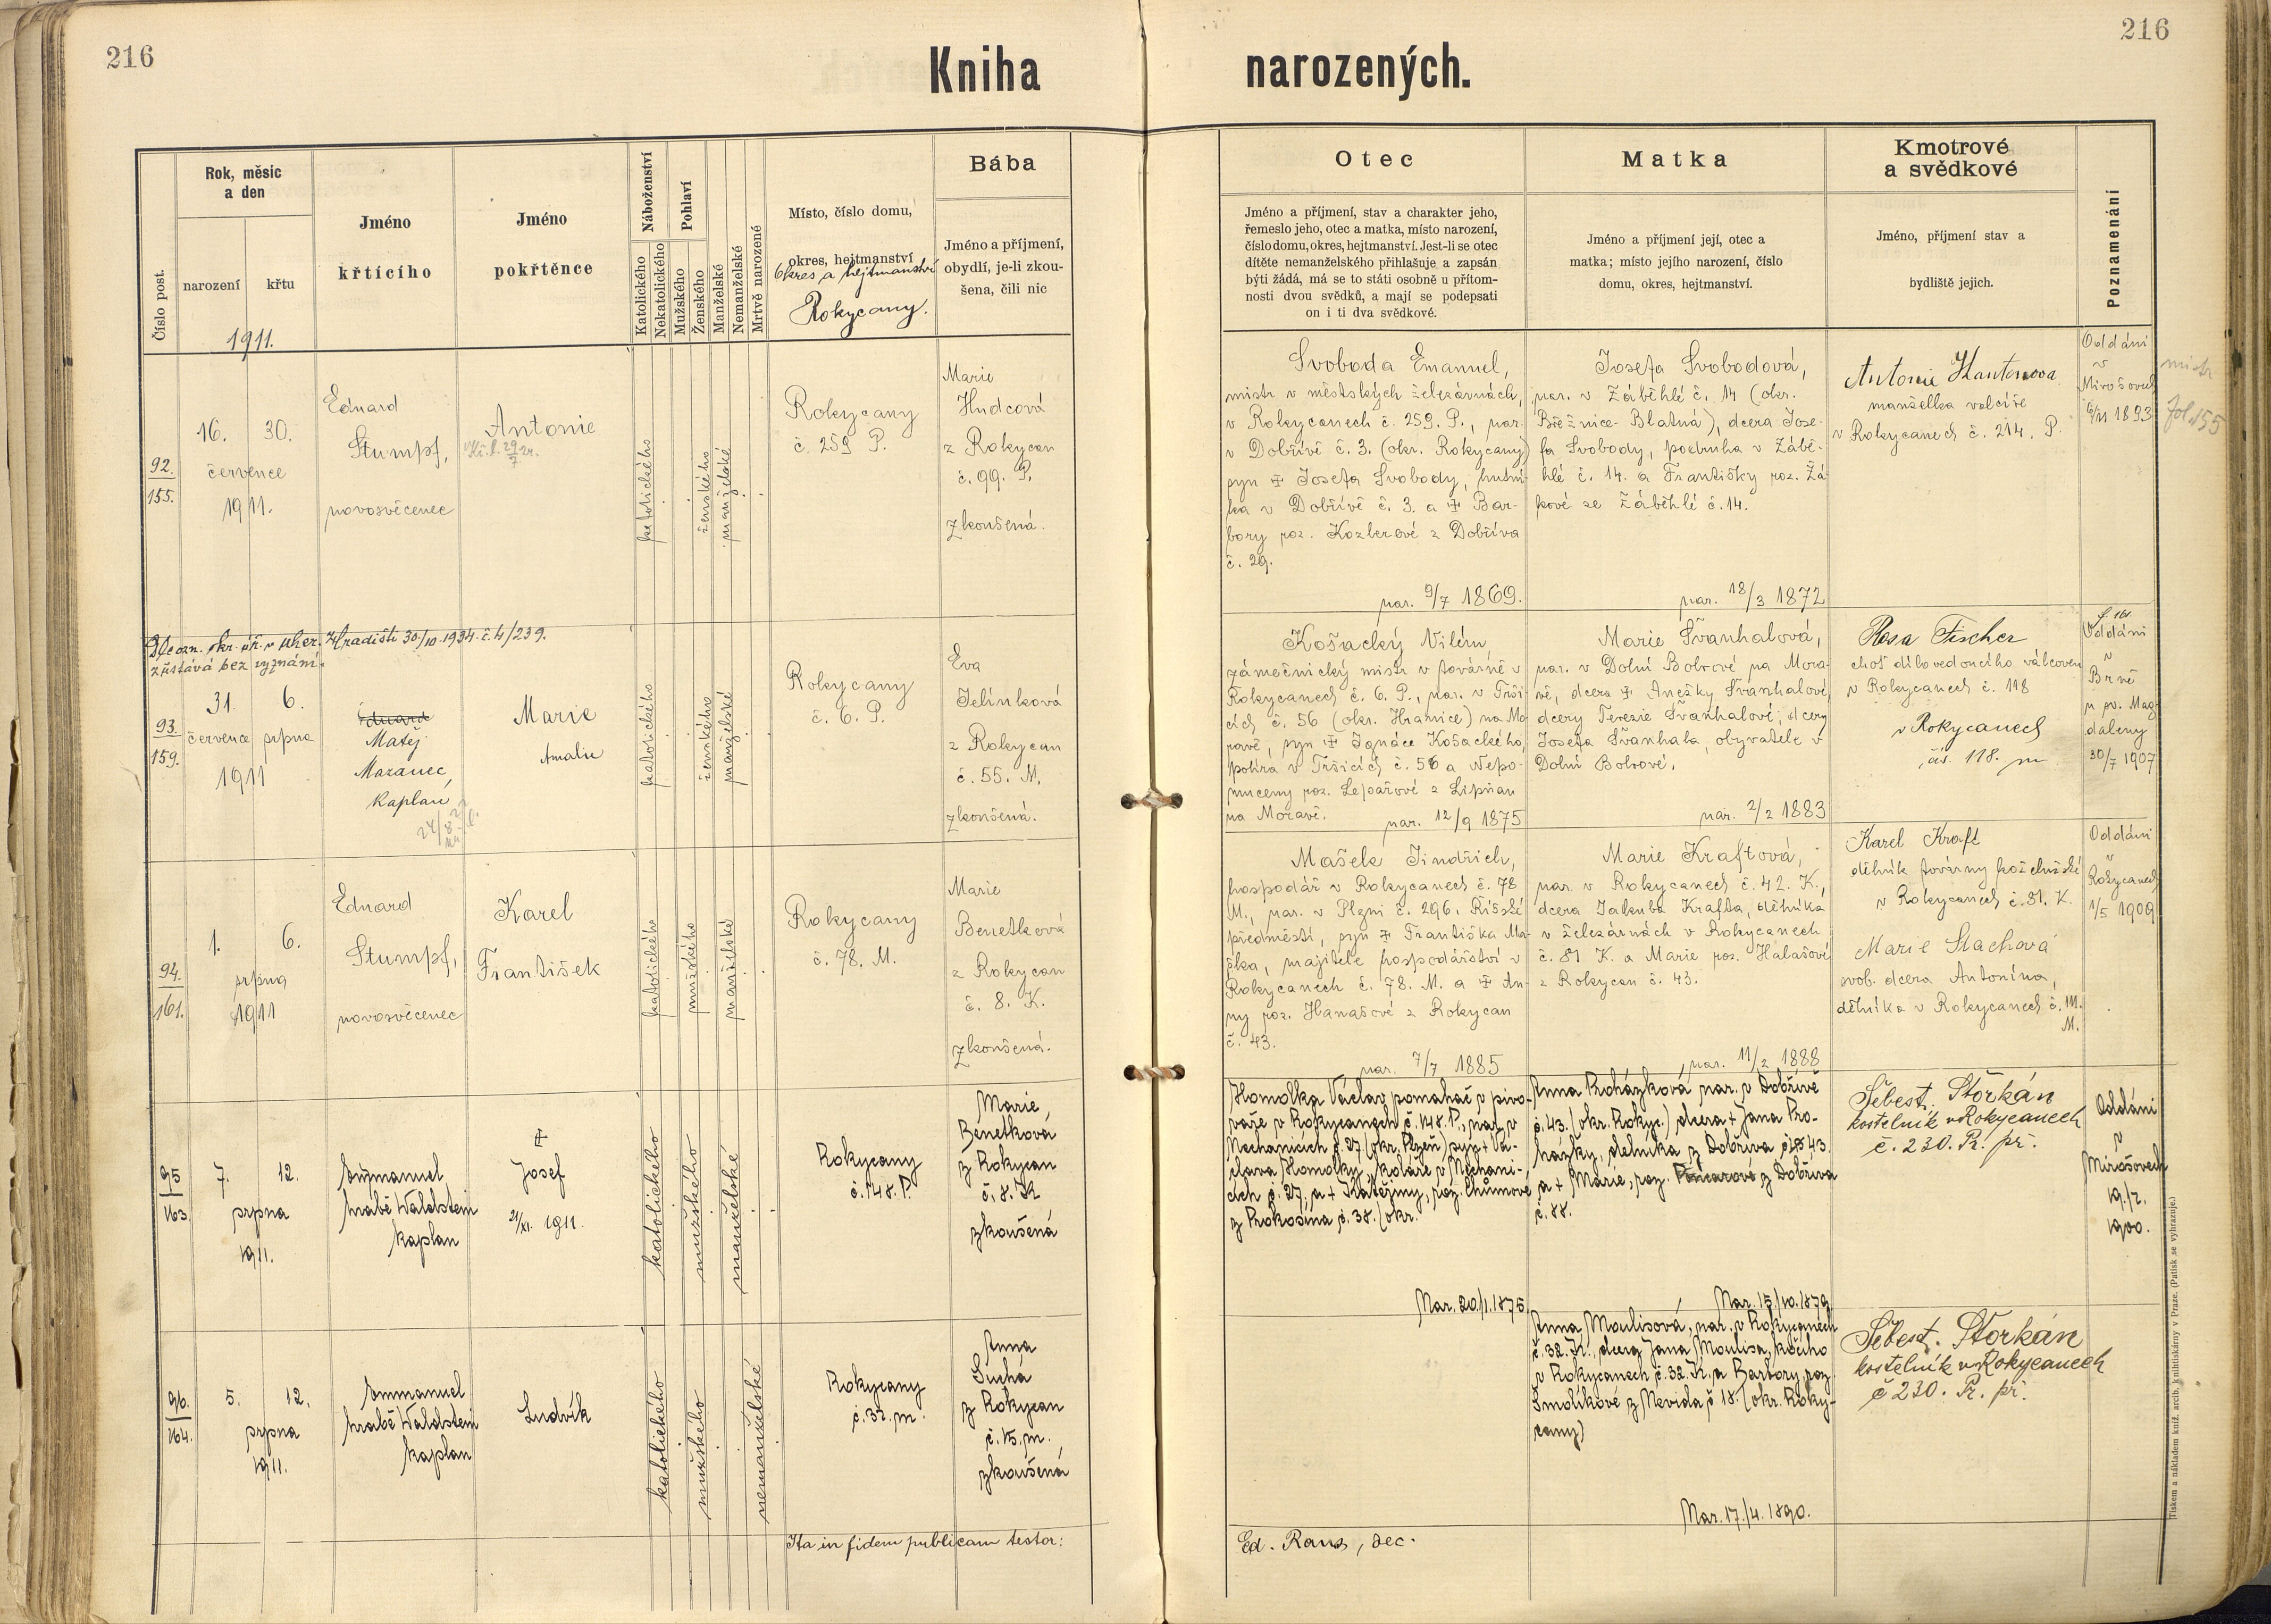 216
216
Kniha
narozených.
Číslo post.
Rok, měsíc
a den
narození
křtu
1911.
Jméno
křtícího
Jméno
pokřtěnce
Náboženství
Katolického
Nekatolického
Pohlaví
Mužského
Ženského
Manželské
Nemanželské
Mrtvě narozené
Místo, číslo domu,
okres, hejtmanství
Okres a hejtmanství
Rokycany.
Bába
Jméno a příjmení,
obydlí, je-li zkou-
šena, čili nic
Otec
Jméno a příjmení, stav a charakter jeho,
řemeslo jeho, otec a matka, místo narození,
číslo domu, okres, hejtmanství. Jest-li se otec
dítěte nemanželského přihlašuje a zapsán
býti žádá, má se to státi osobně u přítom-
nosti dvou svědků, a mají se podepsati
on i ti dva svědkové.
Matka
Jméno a příjmení její, otec a
matka; místo jejího narození, číslo
domu, okres, hejtmanství.
Kmotrové
a svědkové
Jméno, příjmení stav a
bydliště jejich.
Poznamenání
92.
155.
16. 30.
července
1911.
Eduard
Stumpf,
novosvěcenec
Antonie
katolického
ženského
manželské
Rokycany
č. 259 P.
Marie
Hudcová
z Rokycan
č. 99. P.
zkoušená.
Svoboda Emanuel,
mistr v městských železárnách,
v Rokycanech č. 259. P., nar.
v Dobřívě č. 3. (okr. Rokycany)
syn ‡ Josefa Svobody, hutní-
ka v Dobřívě č. 3. a ‡ Bar-
bory roz. Kozlerové z Dobříva
č. 29.
nar. 9/7 1869.
Josefa Svobodová,
nar. v Záběhlé č. 14 (okr.
Březnice-Blatná), dcera Jose-
fa Svobody, podruha v Zábě-
hlé č. 14. a Františky roz. Žá-
kové ze Záběhlé č. 14.
nar. 18/3 1872
Antonie
manželka válcíře
v Rokycanech č. 214. P.
Oddáni
v
Mirošově
6/11 1893
mistr
fol. 155
Dle ozn. okr. úř. v Uher. Hradišti 30./10. 1934. č. 4/239.
zůstává bez vyznání.
93.
159.
31. 6.
července srpna
1911
Eduard
Matěj
Mazanec,
kaplan
Marie
Amalie
katolického
ženského
manželské
Rokycany
č. 6. P.
Eva
Jelínková
z Rokycan
č. 55. M.
zkoušená.
Košacký Vilém,
zámečnický mistr v továrně v
Rokycanech č. 6. P., nar. v Trši
cích č. 56 (okr. Hranice) na Mo
ravě, syn ‡ Ignáce Košackého,
políra v Tršicích č. 56 a Nepo-
muceny roz. Lepařové z Lipňan
na Moravě.
nar. 12/9 1875
Marie Švanhalová,
nar. v Dolní Bobrové na Mora-
vě, dcera ‡ Anežky Švanhalové,
dcery Terezie Švanhalové, dcery
Josefa Švanhala, obyvatele v
Dolní Bobrové.
nar. 2/2 1883
Rosa Fischer
choť dílovedoucího válcoven
v Rokycanech č. 118
v Rokycanech
čís. 118.
Oddáni
v
Brně
u sv. Mag-
daleny
30/7 1907
94.
161.
1. 6.
srpna
1911
Eduard
Stumpf,
novosvěcenec
Karel
František
katolického
mužského
manželské
Rokycany
č. 78. M.
Marie
Benetková
z Rokycan
č. 8. K.
zkoušená.
Mašek Jindřich,
hospodář v Rokycanech č. 78
M., nar. v Plzni č. 296. Říšské
předměstí, syn ‡ Františka Ma-
ška, majitele hospodářství v
Rokycanech č. 78. M. a ‡ An-
ny roz. Hanašové z Rokycan
č. 43.
nar. 7/7 1885
Marie Kraftová,
nar. v Rokycanech č. 42. K.,
dcera Jakuba Krafta, dělníka
v železárnách v Rokycanech
č. 81 K. a Marie roz. Halašové
z Rokycan č. 43.
nar. 11/2 1888
Karel Kraft
dělník továrny koželužské
v Rokycanech č. 81. K.
Marie Slachová
svob. dcera Antonína,
dělníka v Rokycanech č. 111.
M.
Oddáni
v
Rokycanech
1/5 1909
95
163.
7. 12.
srpna
1911.
Emmanuel
hrabě Waldstein
kaplan
‡
Josef
21/XI. 1911.
katolického
mužského
manželské
Rokycany
č. 148. P.
Marie
Benetková
z Rokycan
č. 8. K
zkoušená
Homolka Václav pomahač v pivo-
vaře v Rokycanech č. 148. P., nar. v
Nechanicích č. 27. (okr. Plzeň) syn + Vá-
clava Homolky, koláře v Nechani-
cích č. 27, a + Kateřiny, roz. Chůmové
z Prokosína, č. 38. (okr.
Nar. 20./1. 1875.
Anna Procházková nar. v Dobřívě
č. 43. (okr. Rokyc.) dcera + Jana Pro-
házky, dělníka z Dobříva č. 43.
a + Marie, roz. z Dobříva
č. 88.
Nar. 15./10. 1879.
Šebest. Štorkán
kostelník v Rokycanech
č. 230. Pr. př.
Oddáni
v
Mirošovech
19./2.
1900.
96.
164.
5. 12.
srpna
1911.
Emmanuel
hrabě Waldstein
kaplan
Ludvík
katolického
mužského
nemanželské
Rokycany
č. 32. m.
Anna
Suchá
z Rokycan
č. 15. m.
zkoušená
Anna Moulisová, nar. v Rokycanech
č. 32. K., dcera Jana Moulisa, kočího
v Rokycanech č. 32. K. a Barbory, roz
Smolíkové z Nevida č 18. (okr. Roky-
cany)
Nar. 17./4. 1890.
Šebest. Štorkán
kostelník v Rokycanech
č 230. Pr. př.
Ita in fidem publicam testor:
Ed. Raus, dec.
Tiskem a nákladem kníž. arcib. knihtiskárny v Praze. (Patisk se vyhrazuje.)